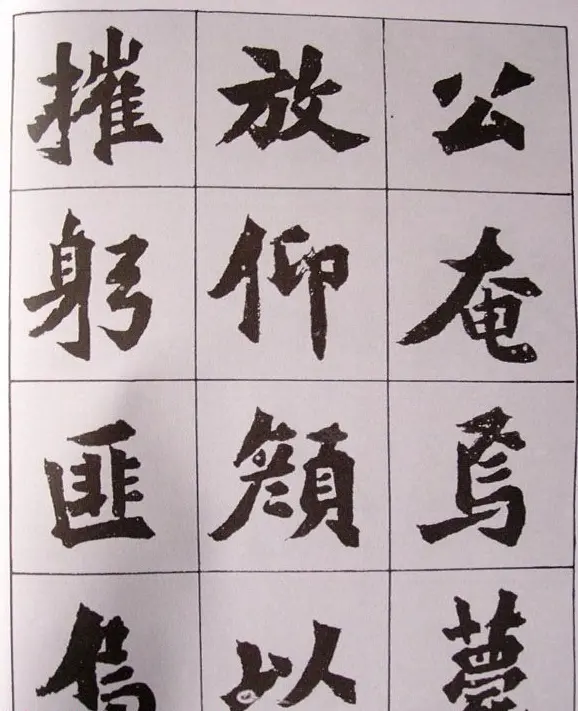 公奄焉薨
放仰顏以
摧躬匪烏